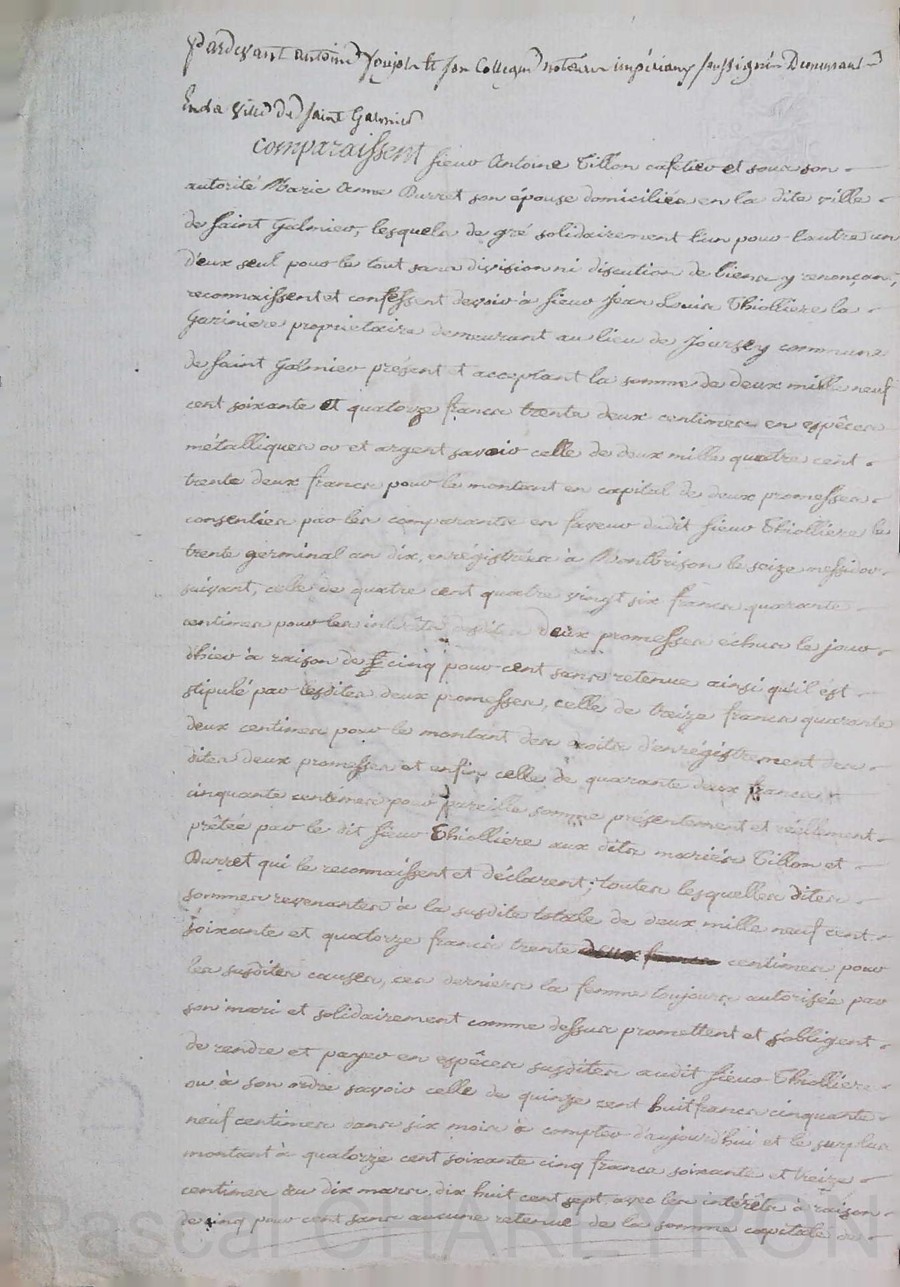 Pardevant antoine Joujoli et son Collegue notaires impériaux soussignés Demeurant
En la ville de Saint Galmier
comparaissent sieur Antoine Tillon cafetier et sous son
autorité Marie Anne Burret son épouse domiciliés en la dite ville
de Saint Galmier, lesquels de gré solidairement l'un pour l'autre un
d'eux seul pour le tout sans division ni discution de biens y renonçant,
reconnaissent et confessent devoir à sieur Jean Louis Thiolliere la
Gariniere propriétaire demeurant au lieu de Joursey commune
de Saint Galmier présent et acceptant la somme de deux mille neuf
cent soixante et quatorze francs trente deux centimes en espêces
métalliques or et argent savoir celle de deux mille quatre cent
trente deux francs pour le montant en capital de deux promesses
consenties par les comparants en faveur dudit sieur Thiolliere le
trente germinal an dix, enrégistrées à Montbrison le seize messidor
suivant, celle de quatre cent quatre vingt six francs quarante
centimes pour les intérêts desdites deux promesses échus le jour
d'hier à raison de cinq pour cent sans retenue ainsi qu'il est
stipulé par lesdites deux promesses, celle de treize francs quarante
deux centimes pour le montant des droits d'enrégistrement des
dites deux promesses et enfin celle de quarante deux francs
cinquante centimes pour pareille somme présentement et réellement
prêtée par le dit sieur Thiolliere aux dits mariés Tillon et
Burret qui le reconnaissent et déclarent; toutes lesquelles dites
sommes revenantes à la susdite totale de deux mille neuf cent
soixante et quatorze francs trente deux francs centimes pour
les susdites causes, ces derniers la femme toujours autorisée par
son mari et solidairement comme dessus promettent et s'obligent
de rendre et payer en espêces susdites audit sieur Thiolliere
ou à son ordre savoir celle de quinze cent huit francs cinquante
neuf centimes dans six mois à compter d'aujourd'hui et le surplus
montant à quatorze cent soixante cinq francs soixante et treize
centimes au dix mars dix huit cent sept avec les intérêts à raison
de cinq pour cent sans aucune retenue de la somme capitale de
Pascal CHAREYRON